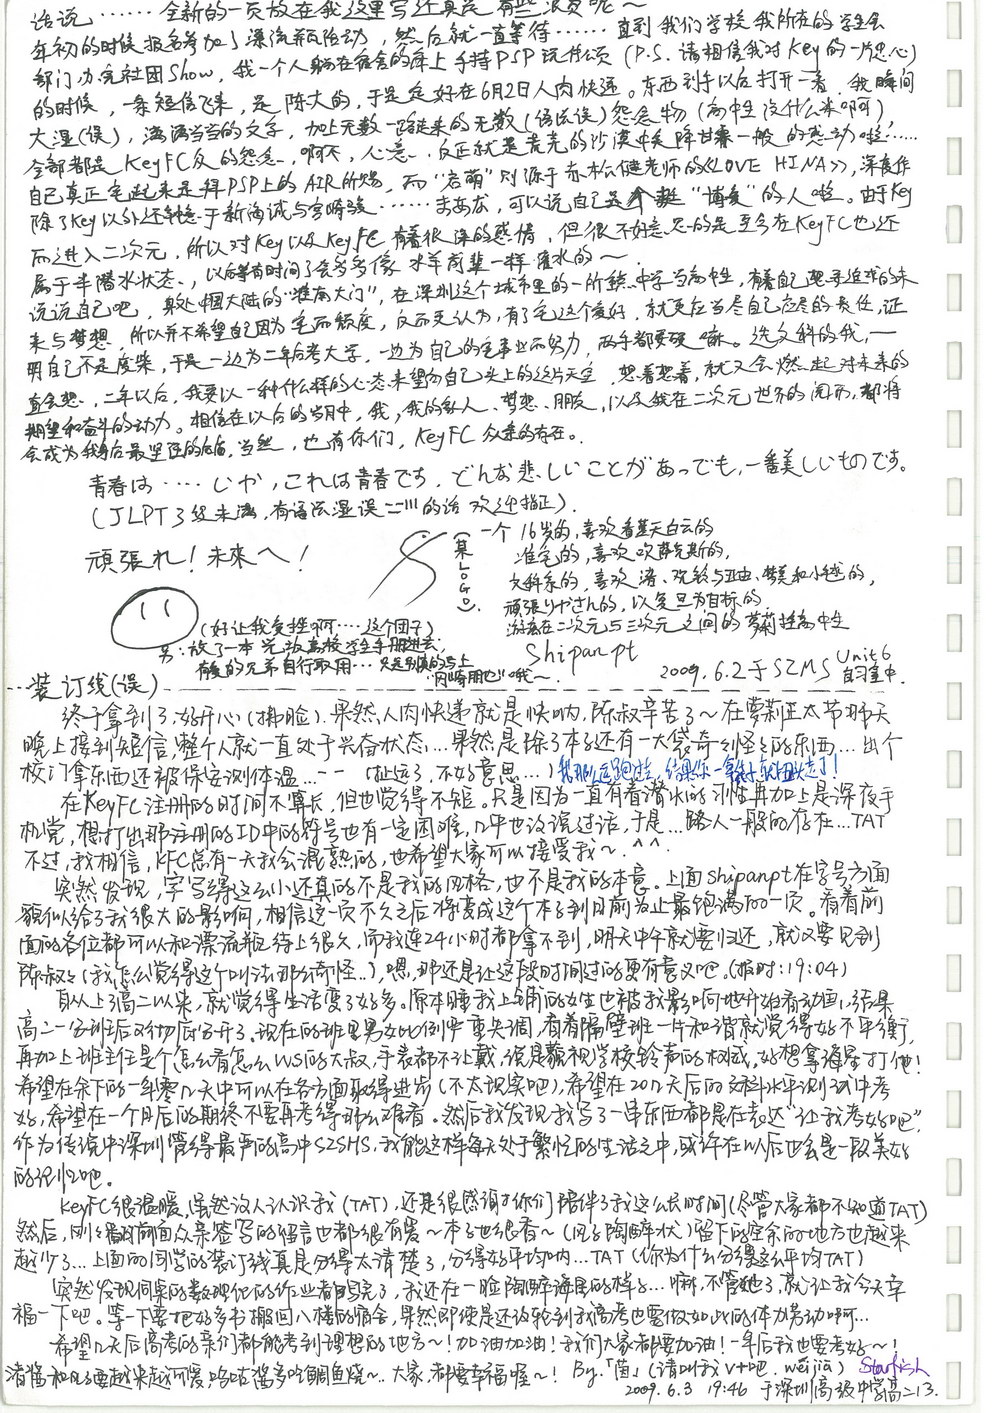 话说……全新的一页放在我这里写还真是有些浪费呢～
年初的时候报名参加了漂流瓶活动，然后就一直等待……直到我们学校我所在的学生会
部门办完社团Show，我一个人躺在宿舍的床上手持PSP玩 (P.S.请相信我对Key的一片忠心)
的时候，一条短信飞来，是陈大的，于是定好在6月2日人肉快递。东西到手以后打开一看，我瞬间
大湿(误)，满满当当的文字，加上无数一路走来的无数(语法误)怨念物(高中生没什么来啊)，
全部都是KeyFC众的怨念，啊不，心意，反正就是荒芜的沙漠中突降甘霖一般的感动啦……
自己真正宅起来是拜PSP上的AIR所赐，而“启萌”则源于赤松健老师的《LOVE HINA》，深度作
除了Key以外还钟意于新海诚与宫崎骏……まあね，可以说自己是个挺“博爱”的人啦。由于Key
而进入二次元，所以对Key以及KeyFC有着很深的感情，但很不好意思的是至今在KeyFC也还
属于半潜水状态，以后等有时间了会多多像水羊前辈一样灌水的～
说说自己吧，身处中国大陆的“淮南大门”，在深圳这个城市里的一所中学当高中生，有着自己想要追求的未
来与梦想，所以并不希望自己因为宅而颓废，反而更认为，有了宅这个爱好，就更应当尽自己应尽的责任，证
明自己不是废柴，于是一边为二年后考大学，一边为自己的宅事业而努力，两手都要硬嘛。选文科的我，一
直会想，二年以后，我要以一种什么样的心态来望向自己头上的这片天空，想着想着，就又会燃起对未来的
期望和奋斗的动力。相信在以后的岁月中，我，我的家人、梦想、朋友，以及我在二次元世界的同好，都将
会成为我身后最坚强的后盾，当然，也有你们，KeyFC众亲的存在。
青春は……しか，これは青春です，どんな悲しいことがあっでも，一番美しいものです。
(JLPT3级未满，有语法湿误二川的话欢迎指正)
頑張れ！未来へ！
(某LOGO)
一个16岁的，喜欢看蓝天白云的
准宅的，喜欢吹萨克斯的，
文科系的，喜欢渚、观铃与亚由、梦美和小毬的，
頑張りやさん的，以复旦为目标的
游离在二次元与三次元之间的萝莉控高中生
Shipanpt
2009.6.2于SZMS Unit6
自习室中.
(好让我受挫啊……这个团子)
另：放了一本光坂高校学生手册进去，
有爱的兄弟自行取用…只是别真的写上
“冈崎朋也”哦～.
装订线(误)
终于拿到了，好开心(拂脸)。果然人肉快递就是快呐，陈叔辛苦了～在萝莉正太节那天
晚上接到短信，整个人就一直处于兴奋状态…果然是除了本子还有一大袋奇奇怪怪的东西…出个
校门拿东西还被保安测体温…一一(扯远了，不好意思…)我那么远跑过去，结果你一拿袋子就扭头走了！
在KeyFC注册的时间不算长，但也觉得不短。只是因为一直有看潜水的习惯再加上是深夜手
机党，想打出那注册的ID中的符号也有一定困难，几乎也没说过话，于是…路人一般的存在…TAT
不过，我相信，KFC总有一天我会混熟的，也希望大家可以接受我～.^^.
突然发现，字写得这么小还真的不是我的风格，也不是我的本意。上面Shipanpt在字号方面
貌似给了我很大的影响，相信这一页不久之后将变成这个本子到目前为止最饱满的一页。看着前
面的各位都可以和漂流瓶待上很久，而我连24小时都拿不到，明天中午就要归还，就又要见到
陈叔叔(我怎么觉得这个叫法那么奇怪…)，嗯，那还是让这段时间过的更有意义吧。(报时:19:04)
自从上了高二以来，就觉得生活变了好多。原本睡我上铺的女生也被我影响地开始看动画，结果
高二一分班后又匆匆分开了。现在的班里男女比例严重失调，看着隔壁班一片和谐就觉得好不平衡，
再加上班主任是个怎么看怎么WS的大叔，手表都不让戴，说是藐视学校铃声的权威，好想拿海星打他！
希望在余下的一年零几天中可以在各方面取得进步(不太现实吧)，希望在20几天后的文科水平测试中考
好，希望在一个月后的期终不要再考得那么难看。然后我发现我写了一串东西都是在表达“让我考好吧”，
作为传说中深圳管得最严的高中SZSHS，我能这样每天处于繁忙的生活之中，或许在以后也会是一段美好
的记忆吧。
KeyFC很温暖，虽然没人认识我(TAT)，还是很感谢你们陪伴了我这么长时间(尽管大家都不知道TAT)
然后，刚刚翻前面众亲签写的留言也都很有爱～本子也很香～(风子陶醉状)留下的空余的地方也越来
越少了…上面的同学的装订线真是分得太清楚了，分得好平均呐…TAT(你为什么分得这么平均TAT)
突然发现同桌的数理化的作业者写完了，我还在一脸陶醉海星的样子…嘛，不管她了，就让我今天幸
福一下吧。等一下要把好多书搬回八楼的宿舍，果然即使是还没轮到我高考也要做如此的体力劳动啊…
希望几天后高考的亲们都能考到理想的地方～！加油加油！我们大家都要加油！一年后我也要考好～！
渚酱和风子要越来越可爱，哈咕酱多吃鲷鱼烧～..大家，都要幸福喔～！By.「茵」(请叫我v+吧. weijia) Starfish
2009.6.3 19:46 于深圳高级中学高二13.